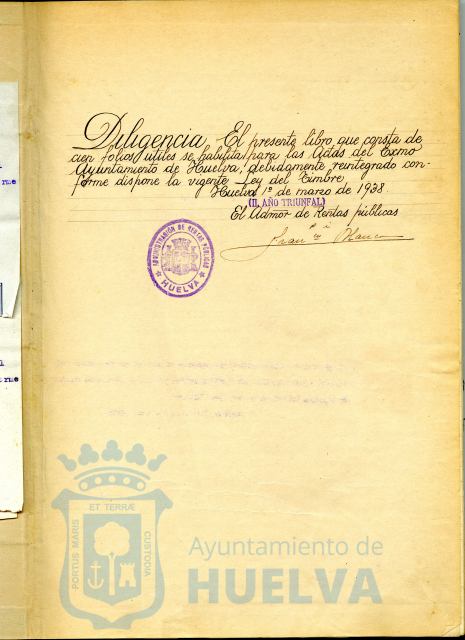 Diligencia, El presente libro que consta de
cien folios utiles se habilita para las Actas del Excmo
Ayuntamiento de Huelva, debidamente reintegrado con-
forme dispone la vigente Ley del Timbre.
Huelva 1º de marzo de 1938
(II. AÑO TRIUNFAL)
El Admor de Rentas públicas
ADMINISTRACIÓN DE RENTAS PÚBLICAS
HUELVA
PORTUS MARIS
ET TERRÆ
CUSTODIA
Ayuntamiento de
HUELVA